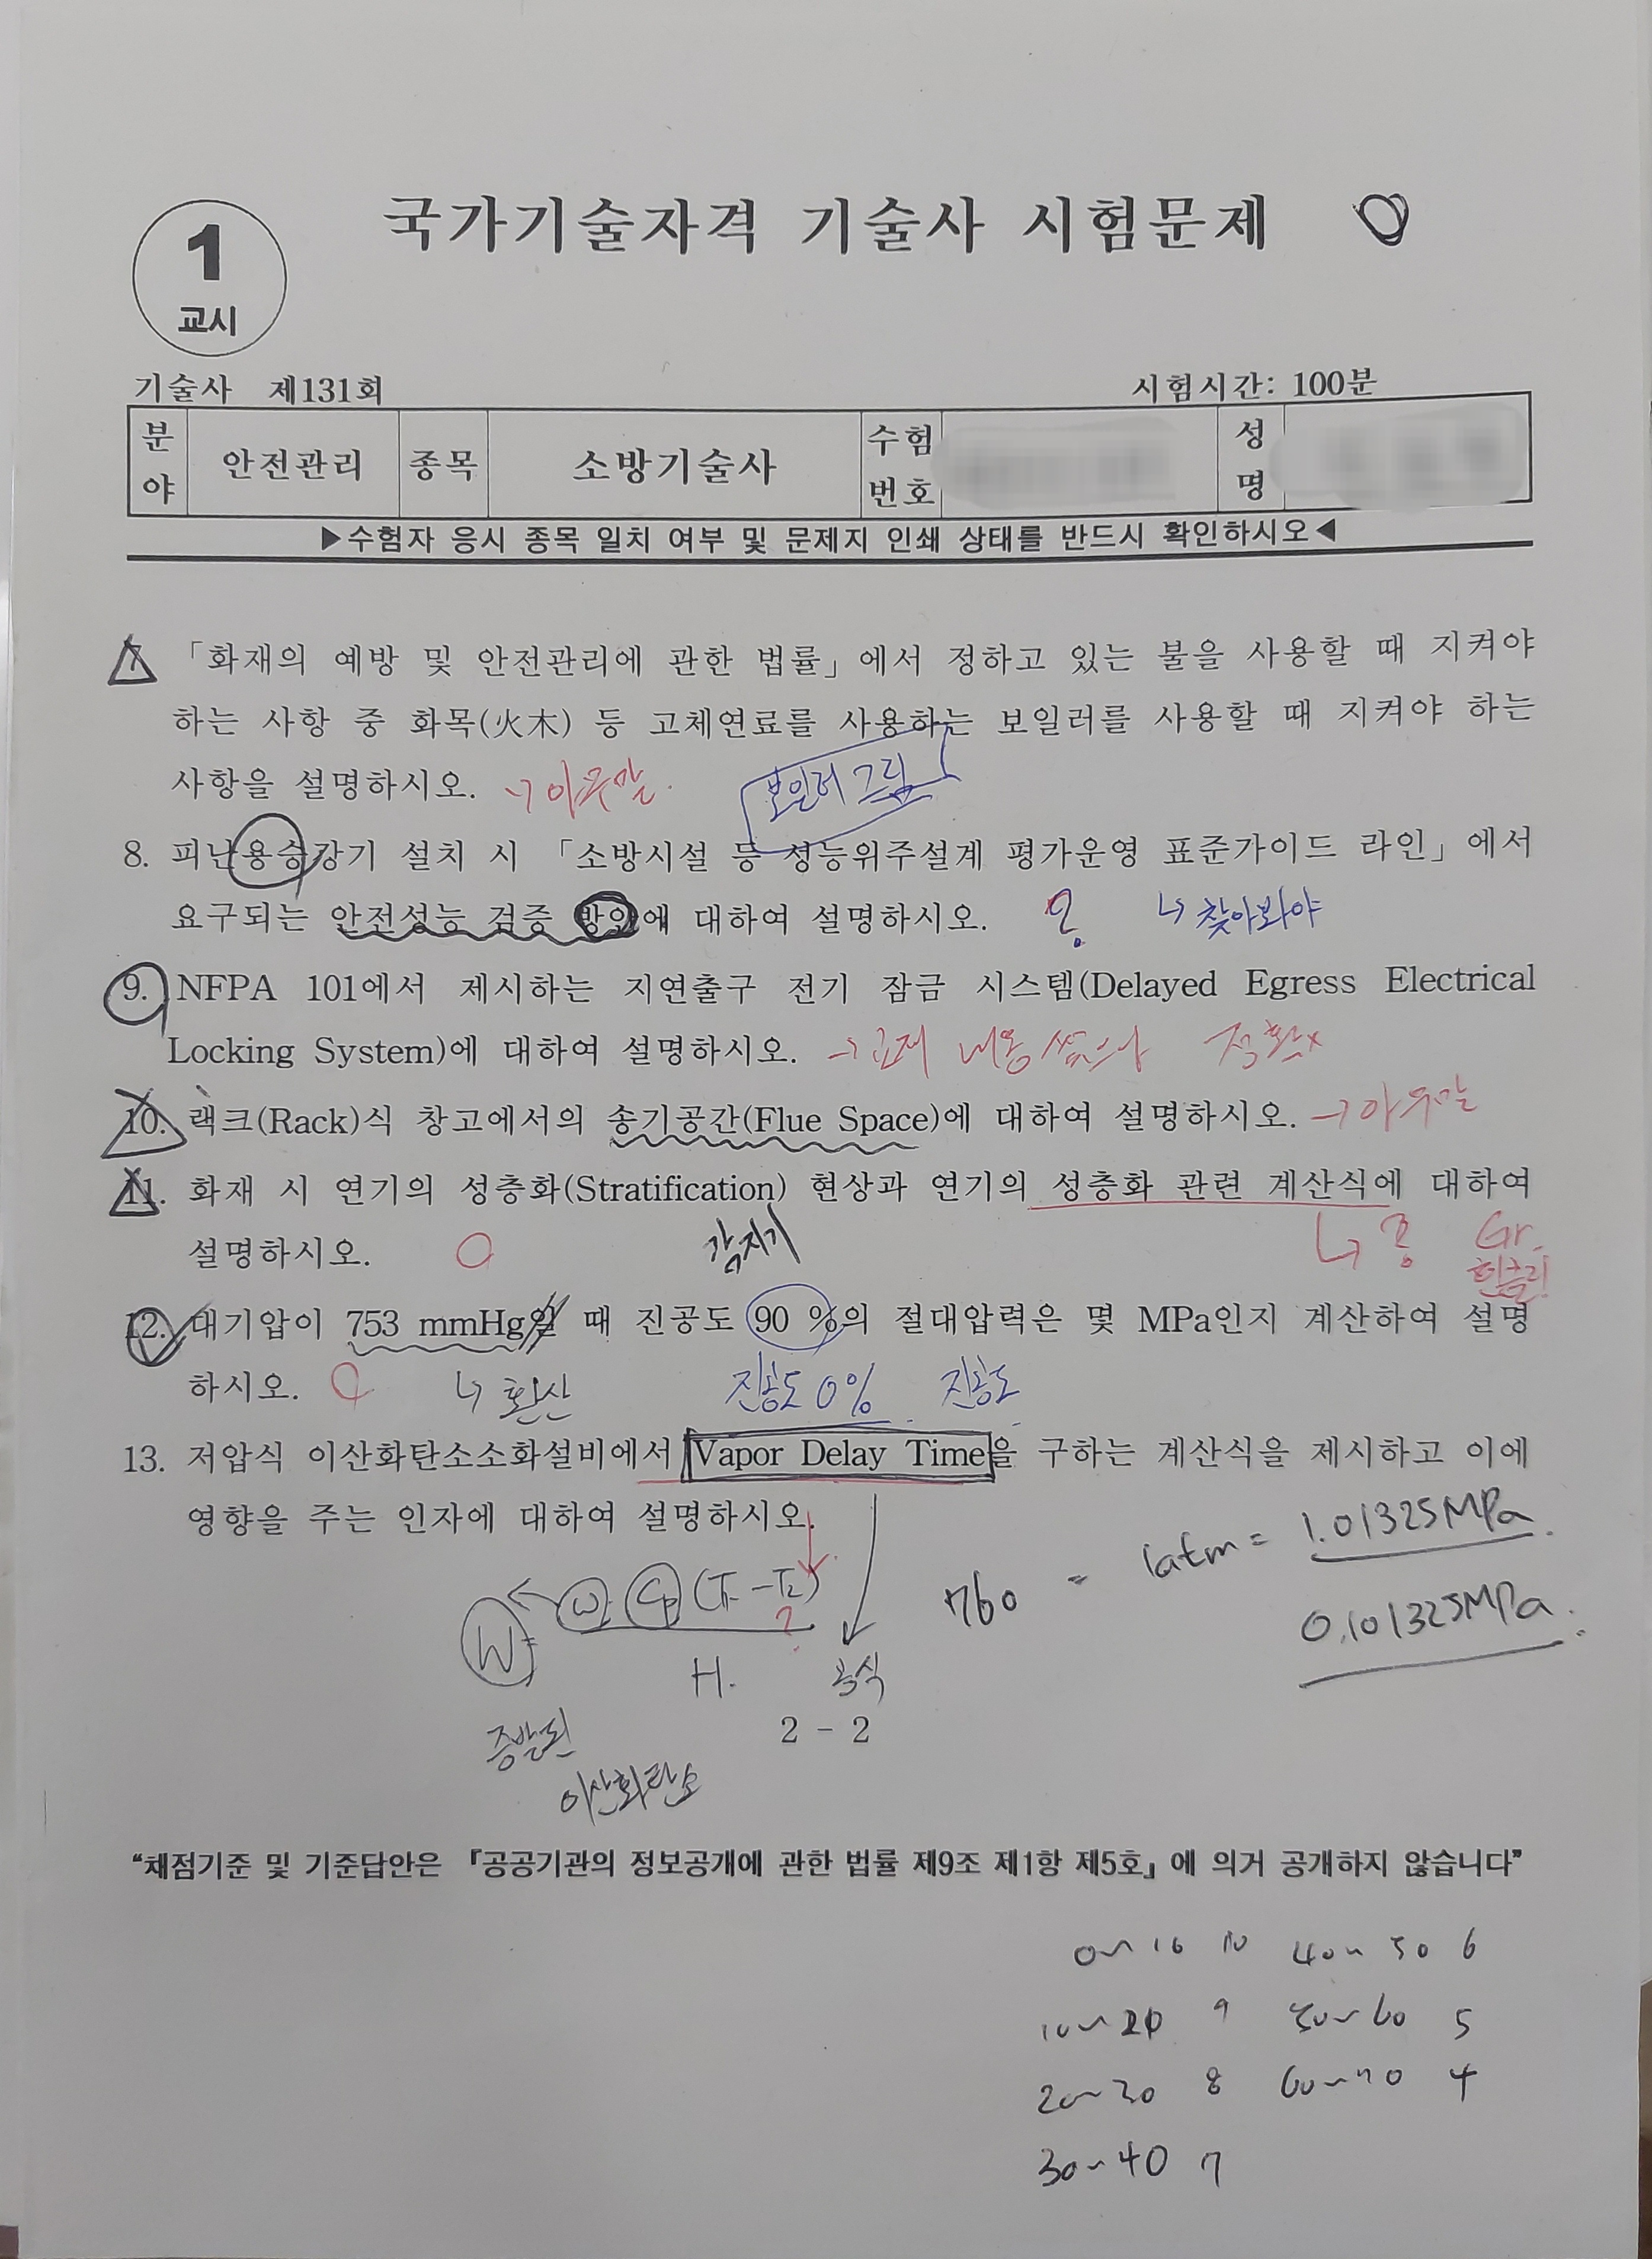 국가기술자격 기술사 시험문제
1
교시
기술사 제131회
시험시간: 100분
분야 안전관리 종목 소방기술사 수험번호 성명
▶수험자 응시 종목 일치 여부 및 문제지 인쇄 상태를 반드시 확인하시오◀
7. 「화재의 예방 및 안전관리에 관한 법률」에서 정하고 있는 불을 사용할 때 지켜야
하는 사항 중 화목(火木) 등 고체연료를 사용하는 보일러를 사용할 때 지켜야 하는
사항을 설명하시오. → 아무말.
보일러 그림
8. 피난용승강기 설치 시 「소방시설 등 성능위주설계 평가운영 표준가이드 라인」에서
요구되는 안전성능 검증 방안에 대하여 설명하시오. ? ↳ 찾아봐야
9. NFPA 101에서 제시하는 지연출구 전기 잠금 시스템(Delayed Egress Electrical
Locking System)에 대하여 설명하시오. → 교재 내용 썼으나 정확x
10. 랙크(Rack)식 창고에서의 송기공간(Flue Space)에 대하여 설명하시오. → 아무말
11. 화재 시 연기의 성층화(Stratification) 현상과 연기의 성층화 관련 계산식에 대하여
설명하시오. 감지기
Gr.
12. 대기압이 753 mmHg일 때 진공도 90 %의 절대압력은 몇 MPa인지 계산하여 설명
하시오. ↳ 환산 진공도 0% 진공도
13. 저압식 이산화탄소소화설비에서 Vapor Delay Time을 구하는 계산식을 제시하고 이에
영향을 주는 인자에 대하여 설명하시오.
760 = 1atm = 1.01325MPa.
0.101325MPa.
W = ω Cp (T1 - T2) ?
H. 공식
증발된
이산화탄소
2 - 2
“채점기준 및 기준답안은 『공공기관의 정보공개에 관한 법률 제9조 제1항 제5호』에 의거 공개하지 않습니다”
0~10 10 40~50 6
10~20 9 50~60 5
20~30 8 60~70 4
30~40 7